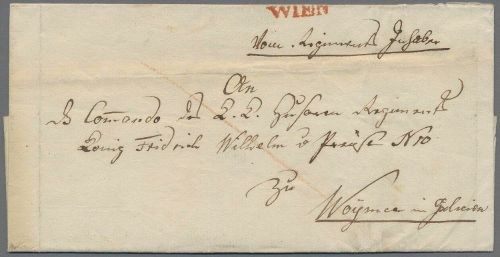 WIEN
Vom Regiments Inhaber
An
Ds Commando des K. K. Husaren Regiments
König Fridrich Wilhelm v Preuse N 10
Zu
in Galicien